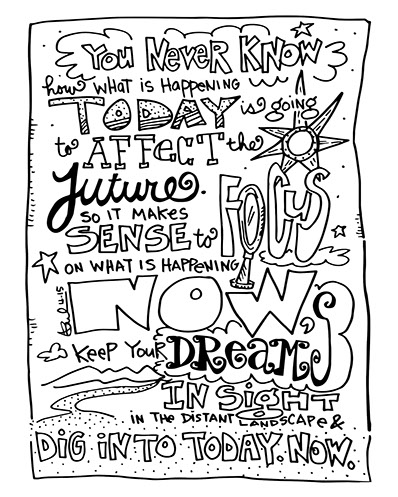 YOU NEVER KNOW
how WHAT IS HAPPENING
TODAY is going
to AFFECT the
future.
SO IT MAKES
SENSE to FOCUS
ON WHAT IS HAPPENING
NOW, &
KEEP YOUR DREAMS
IN SIGHT
IN THE DISTANT LANDSCAPE &
DIG IN TO TODAY. NOW.